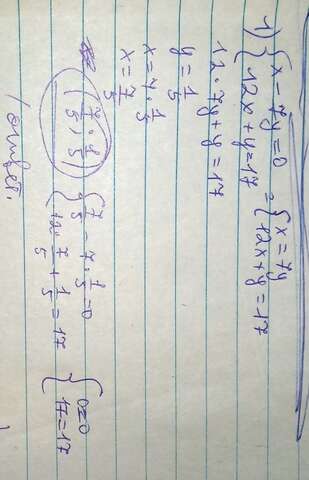 1) { x - 7y = 0 = { x = 7y
{ 12x + y = 17 { 12x + y = 17
12 · 7y + y = 17
y = 1/5
x = 7 · 1/5
x = 7/5
(7/5 ; 1/5) { 7/5 - 7 · 1/5 = 0 { 0=0
{ 12 · 7/5 + 1/5 = 17 { 17=17
ответ.